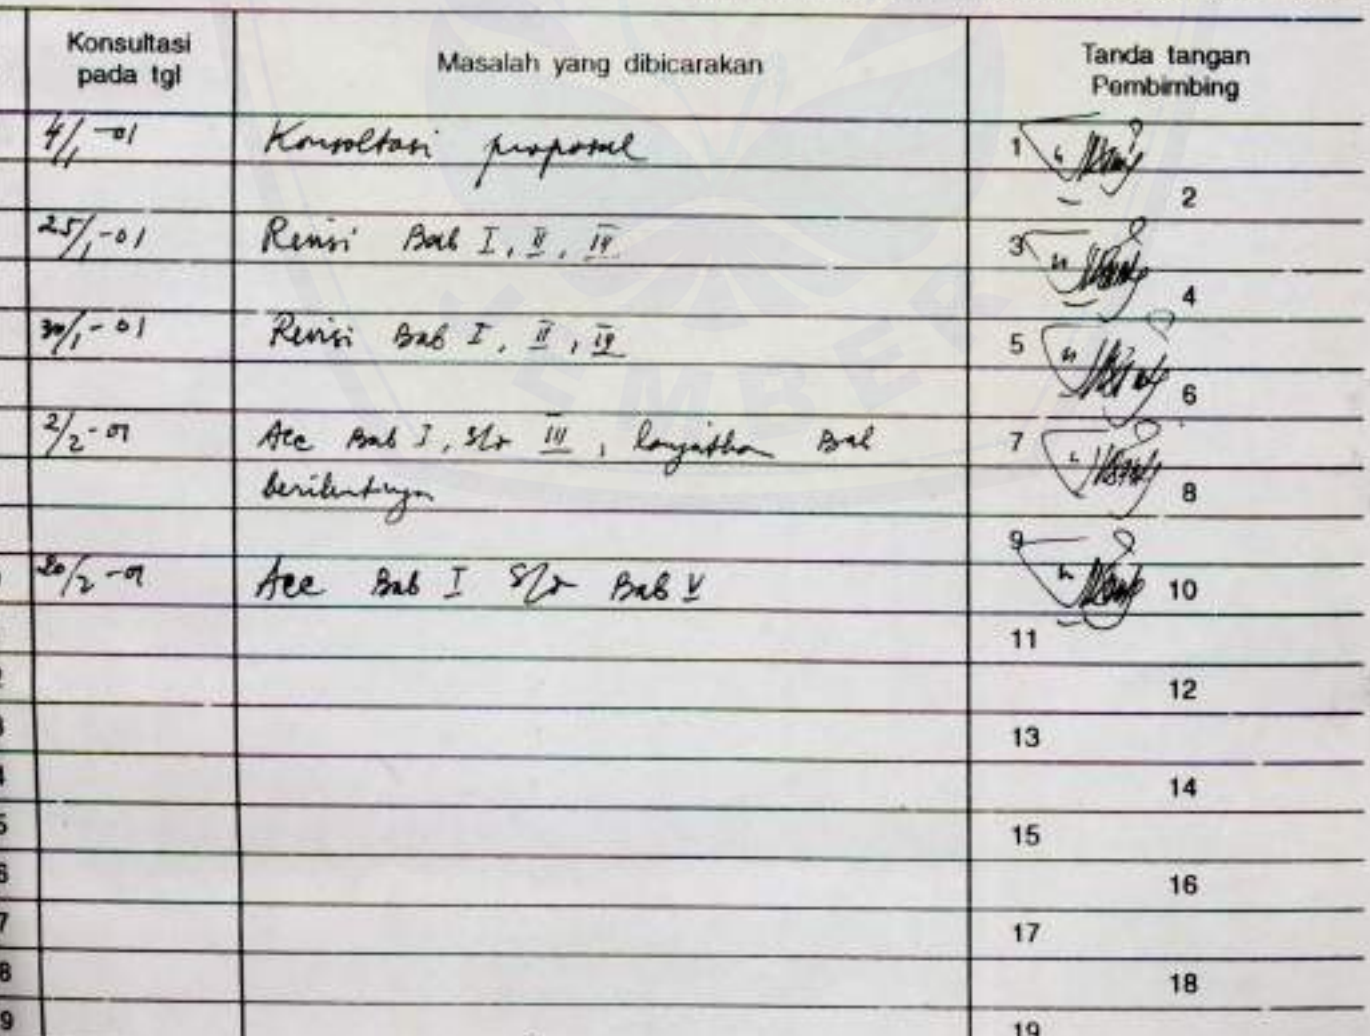 Konsultasi
pada tgl
Masalah yang dibicarakan
Tanda tangan
Pembimbing
4/1 -01 Konsoltasi proposal 1
2
25/1 -01 Revisi Bab I, II, IV 3
4
30/1 -01 Revisi Bab I, II, IV 5
6
2/2 -01 Acc Bab I, s/d III, lanjutkan Bab 7
berikutnya 8
9
20/2 -01 Acc Bab I s/d Bab V 10
11
12
13
14
15
6 16
7 17
8 18
9 19
JEMBER